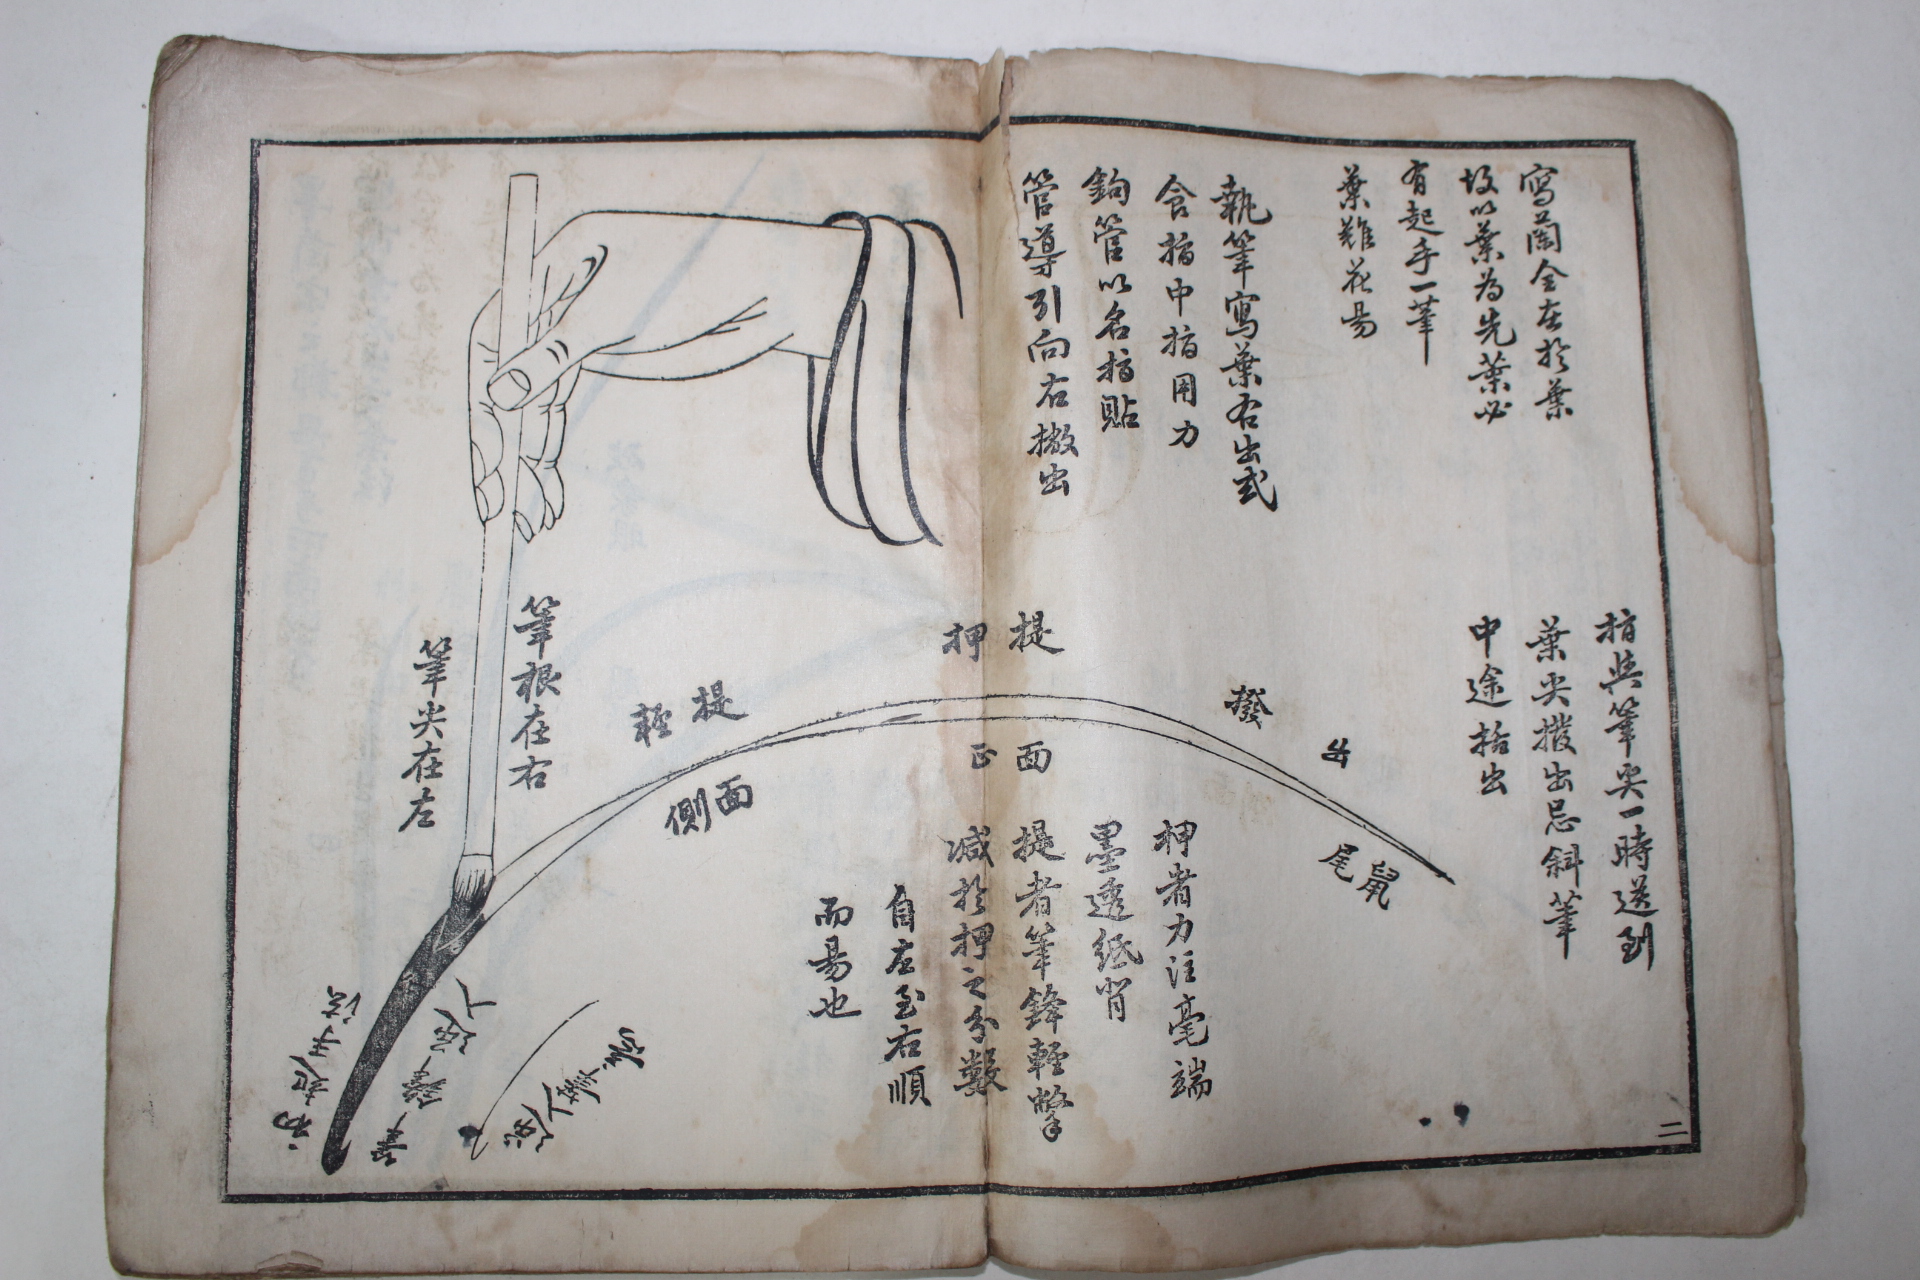 寫蘭全在於葉
故以葉為先葉必
有起手一筆
葉難花易
執筆寫葉右出式
食指中指用力
鉤管以名指貼
管導引向右撇出
指與筆尖一時送到
葉尖撥出忌斜筆
中途括出
提
押
提
輕
撥
出
面
正
面
側
鼠
尾
筆根在右
筆尖在左
押者力注毫端
墨透紙背
提者筆鋒輕撆
減於押之分數
自左至右順
而易也
第一筆
逆入
二